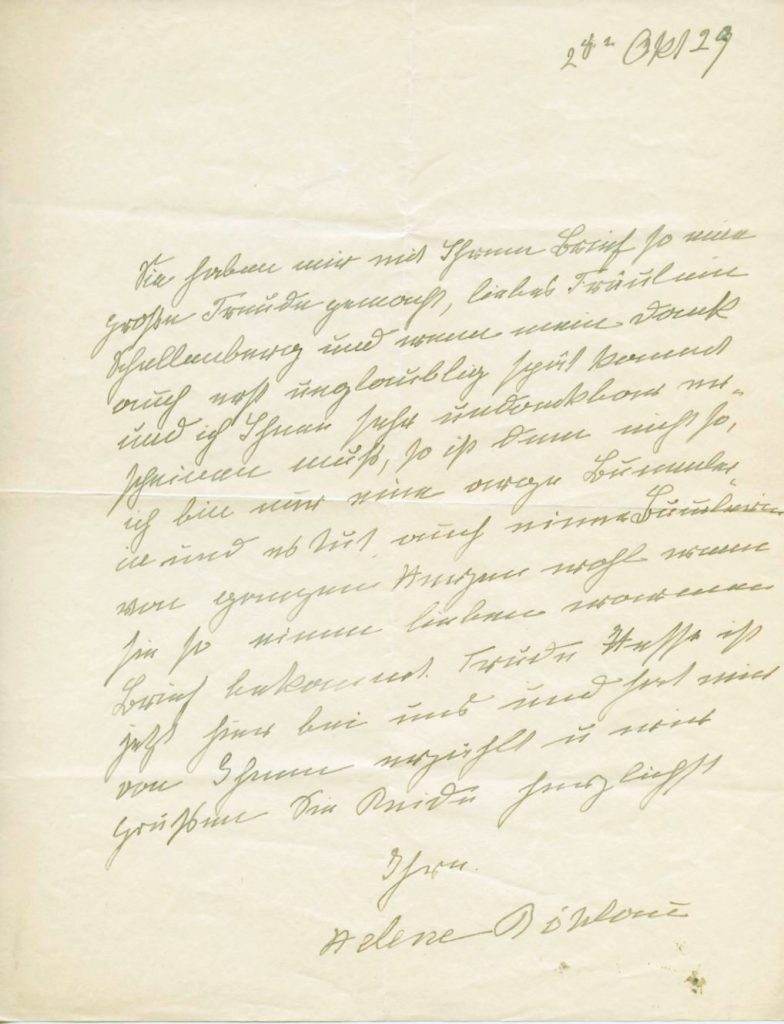 28. Okt 29
Sie haben mir mit Ihrem Brief so eine
große Freude gemacht, liebes Fräulein
Schellenberg und wenn mein Dank
auch erst unglaublig spät kommt
und ich Ihnen sehr undankbar er-
scheinen muß, so ist dem nicht so,
ich bin nur eine arge Bummler-
in und es tut auch einer Bumlerin
von ganzen Herzen wohl wenn
sie so einen lieben warmen
Brief bekommt. Trude Hesse ist
jetzt hier bei uns und hat mir
von Ihnen erzählt u wir
grüßen Sie Beide herzlichst
Ihre
Helene Böhlau